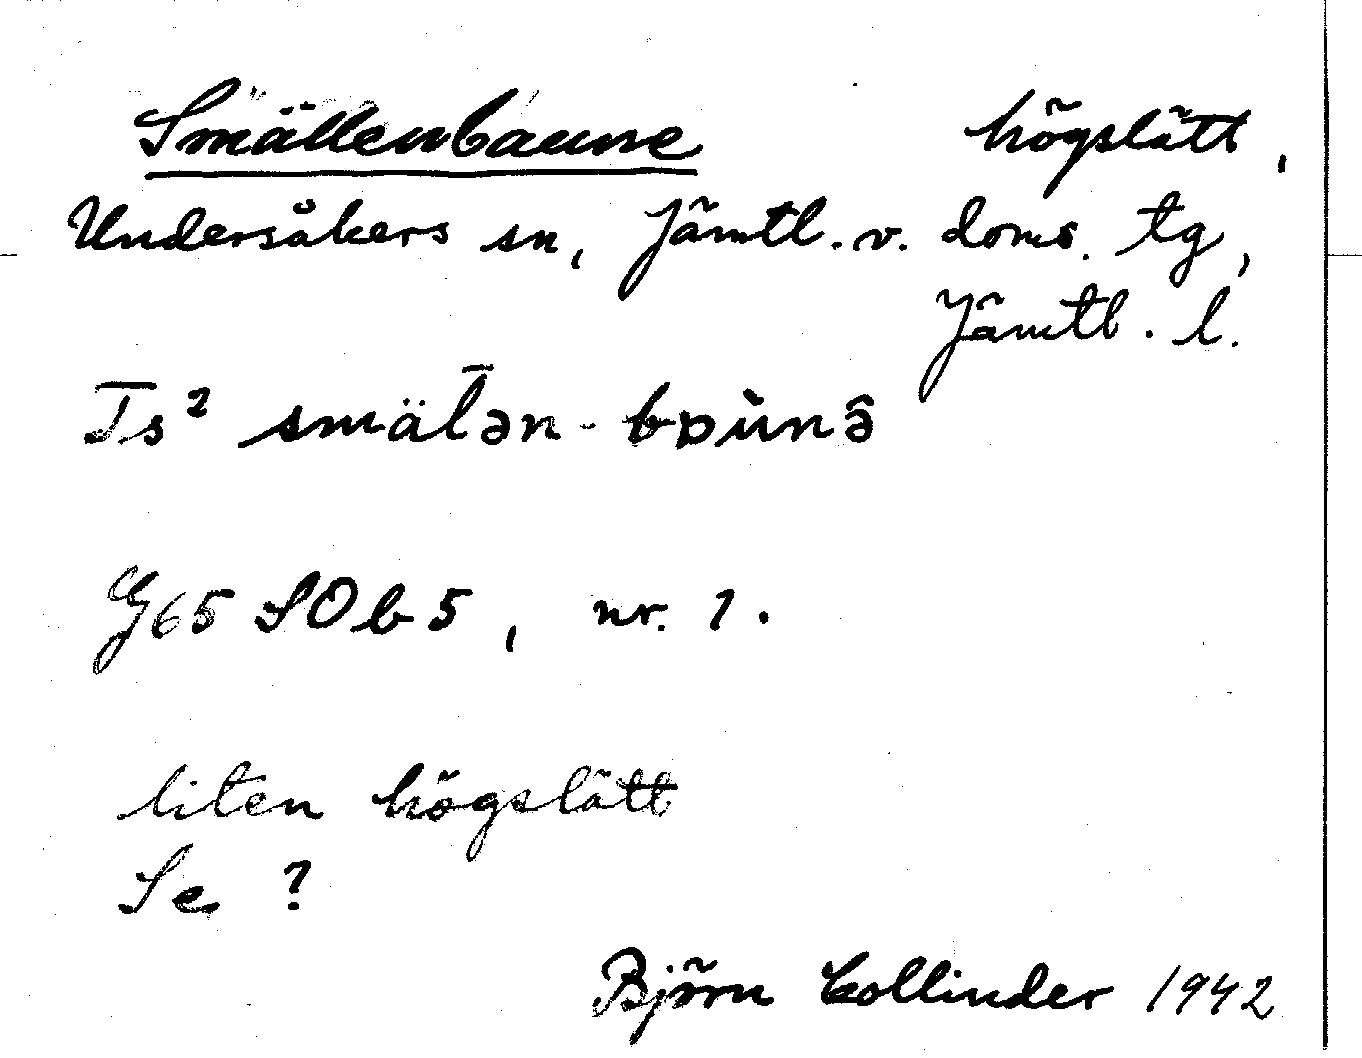 Smällenbaune högslätt,
Undersåkers sn, Jämtl. v. doms. tg,
Jämtl. l.
Ts² smäl̄ən-bɒùnə̂
G65 SOb5, nr. 1.
liten högslätt
Se ?
Björn Collinder 1942